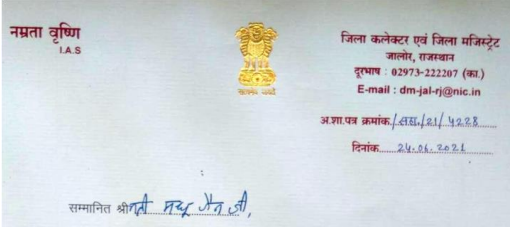 नम्रता वृष्णि
I.A.S
सत्यमेव जयते
जिला कलेक्टर एवं जिला मजिस्ट्रेट
जालोर, राजस्थान
दूरभाष : 02973-222207 (का.)
E-mail : dm-jal-rj@nic.in
अ.शा.पत्र क्रमांक/सह./21/4228
दिनांक 24.06.2021
सम्मानित श्रीमती मधु जैन जी,